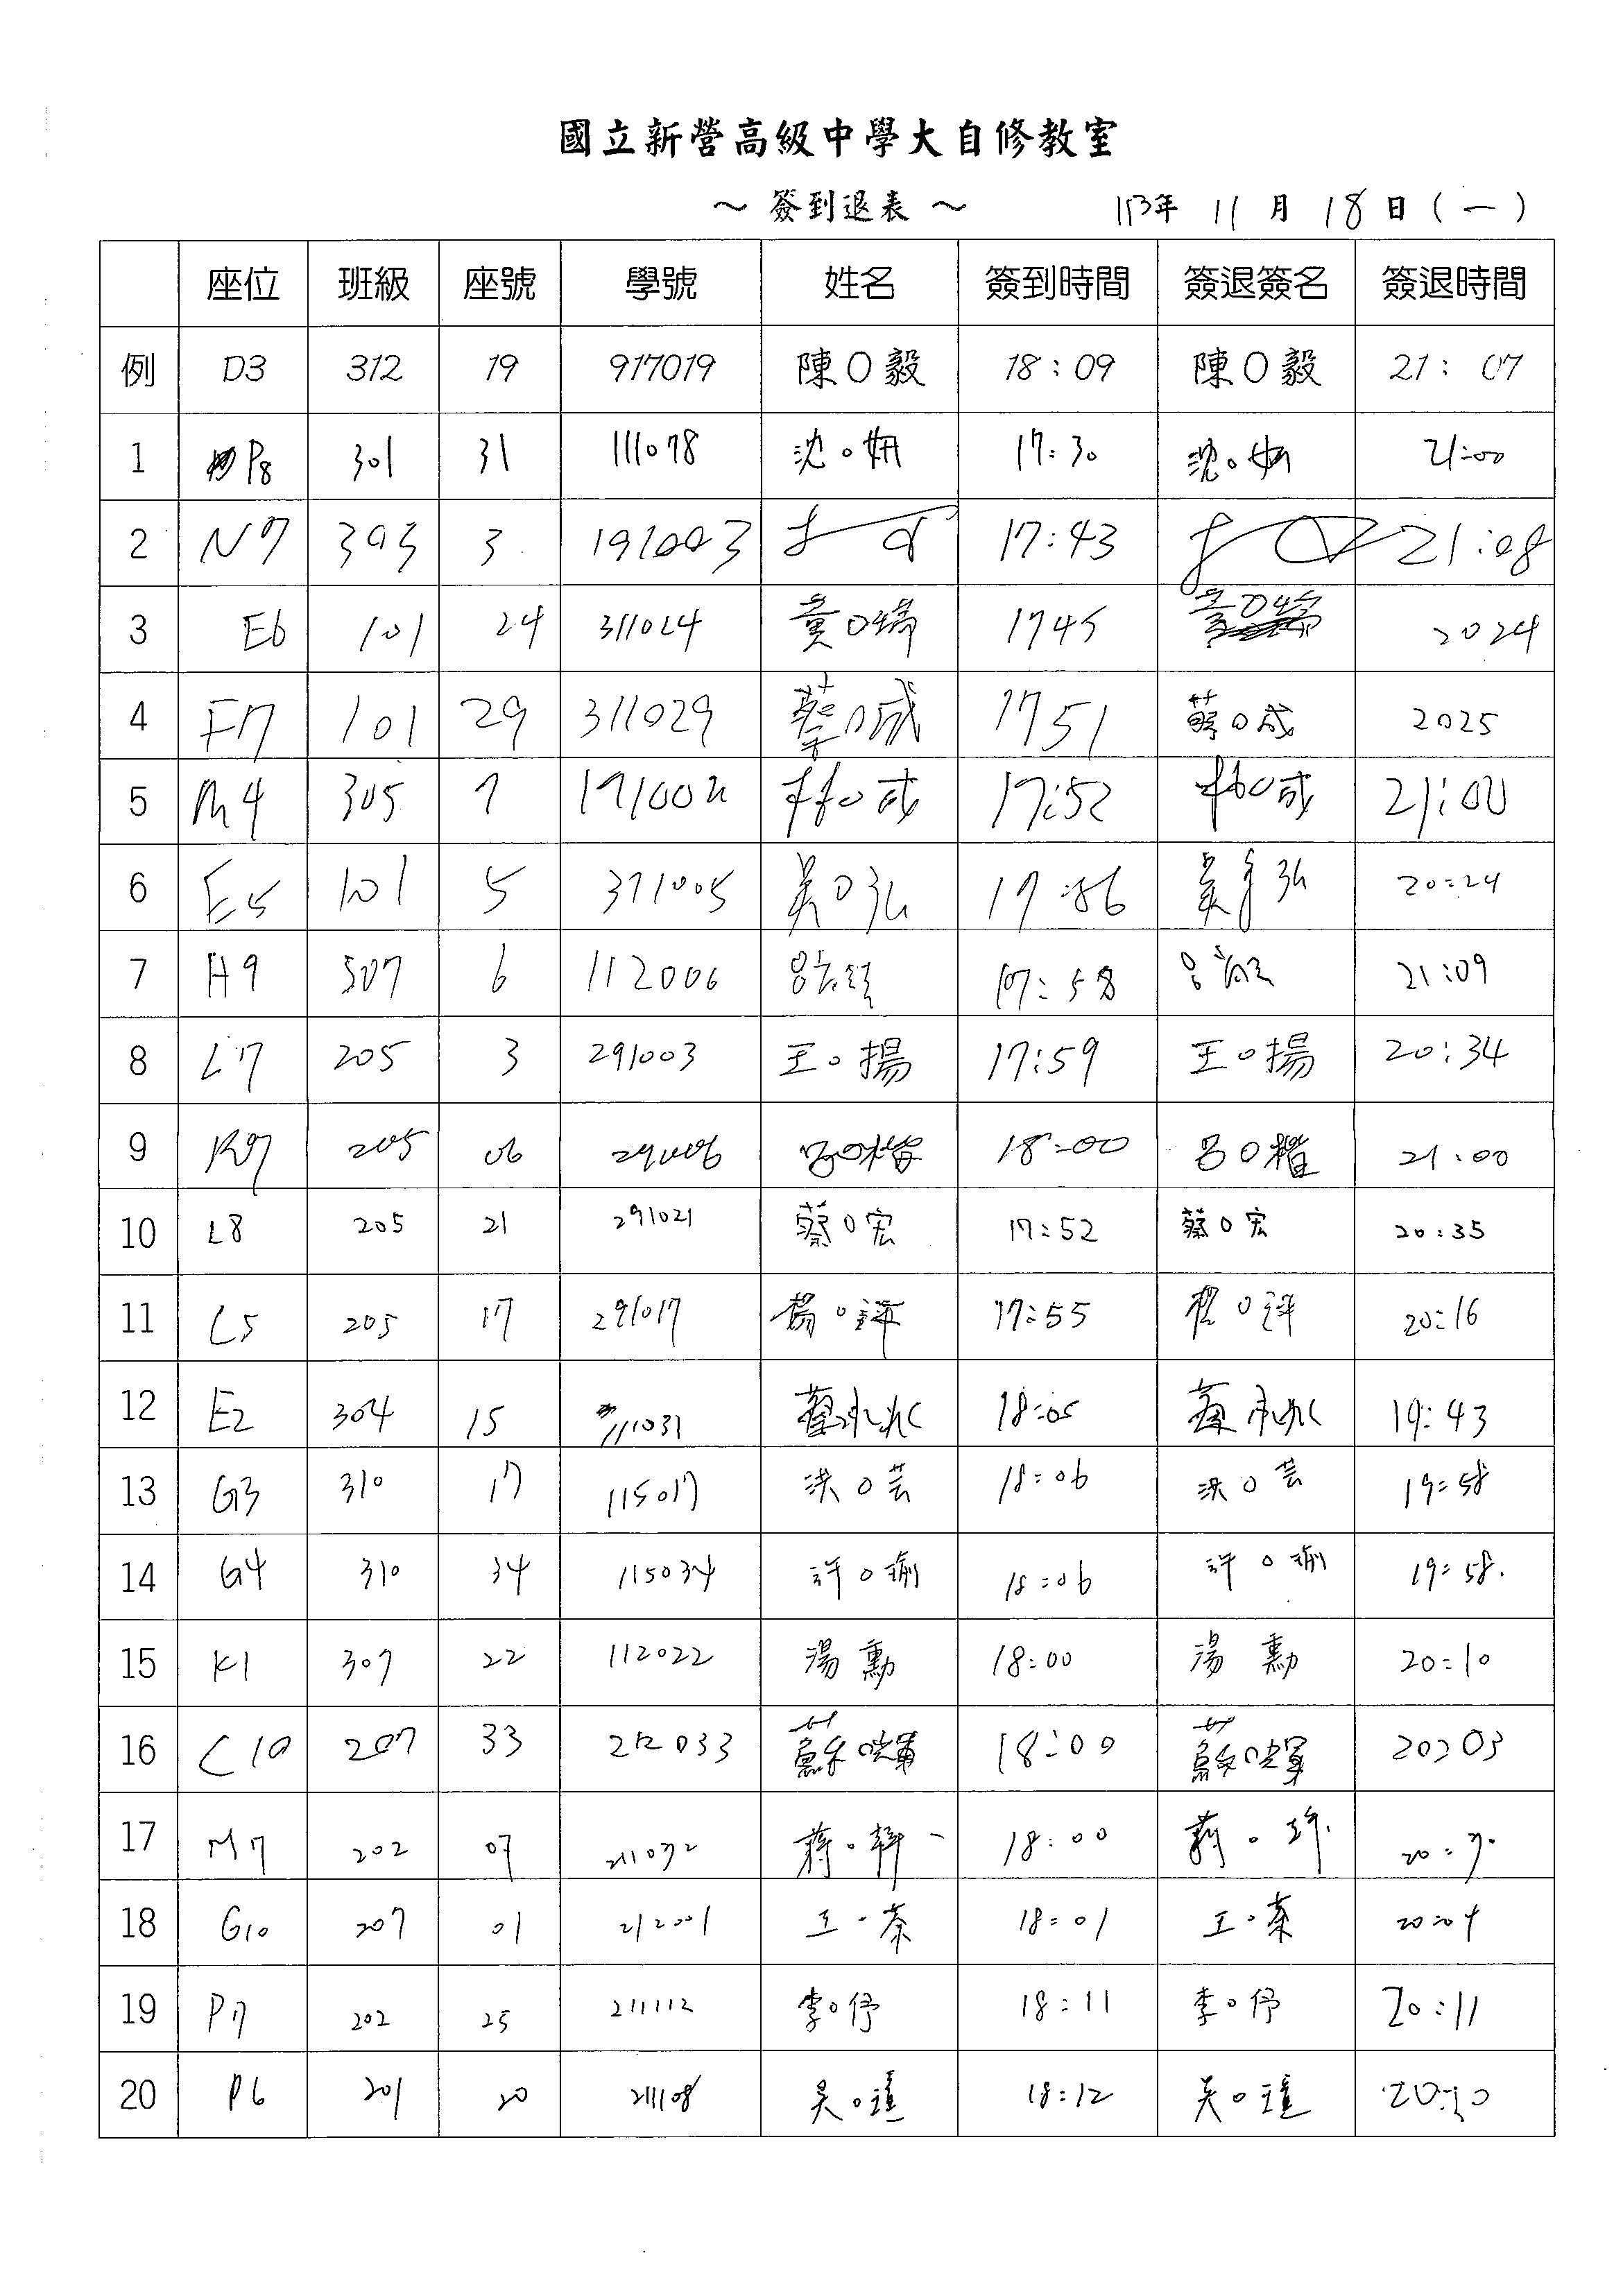 國立新營高級中學大自修教室
～ 簽到退表 ～ 113年 11月 18日(一)
座位 班級 座號 學號 姓名 簽到時間 簽退簽名 簽退時間
例 D3 312 19 917019 陳O毅 18:09 陳O毅 21:07
1 P8 301 31 111078 沈O妍 17:30 沈O妍 21:00
2 N7 303 3 191003 17:43 21:08
3 E6 101 24 311024 黃O 1745 黃O 2024
4 F7 101 29 311029 蔡O 1751 蔡O 2025
5 M4 305 林O成 17:52 林O成 21:00
6 E5 101 5 311005 吳O弘 吳 弘 20:24
7 H9 307 6 112006 呂 17:58 呂 21:09
8 L7 205 3 291003 王O揚 17:59 王O揚 20:34
9 R7 205 06 291006 呂O楷 18:00 呂O楷 21:00
10 L8 205 21 291021 蔡O宏 17:52 蔡O宏 20:35
11 L5 205 17 291017 楊O評 17:55 楊O評 20:16
12 E2 304 15 111031 18:05 19:43
13 G3 310 17 115017 洪O芸 18:06 洪O芸 19:58
14 G4 310 34 115034 許O瑜 18:06 許O瑜 19:58.
15 K1 307 22 112022 湯 勳 18:00 湯 勳 20:10
16 C10 207 33 212033 蘇O輝 18:00 蘇O輝 2003
17 M7 202 07 211072 蔣O 18:00 蔣O 20:
18 G10 207 01 212001 王O棻 18:01 王O棻 20:04
19 P7 202 25 211112 李O伃 18:11 李O伃 20:11
20 P6 201 20 211108 吳O瑾 18:12 吳O瑾 20:10